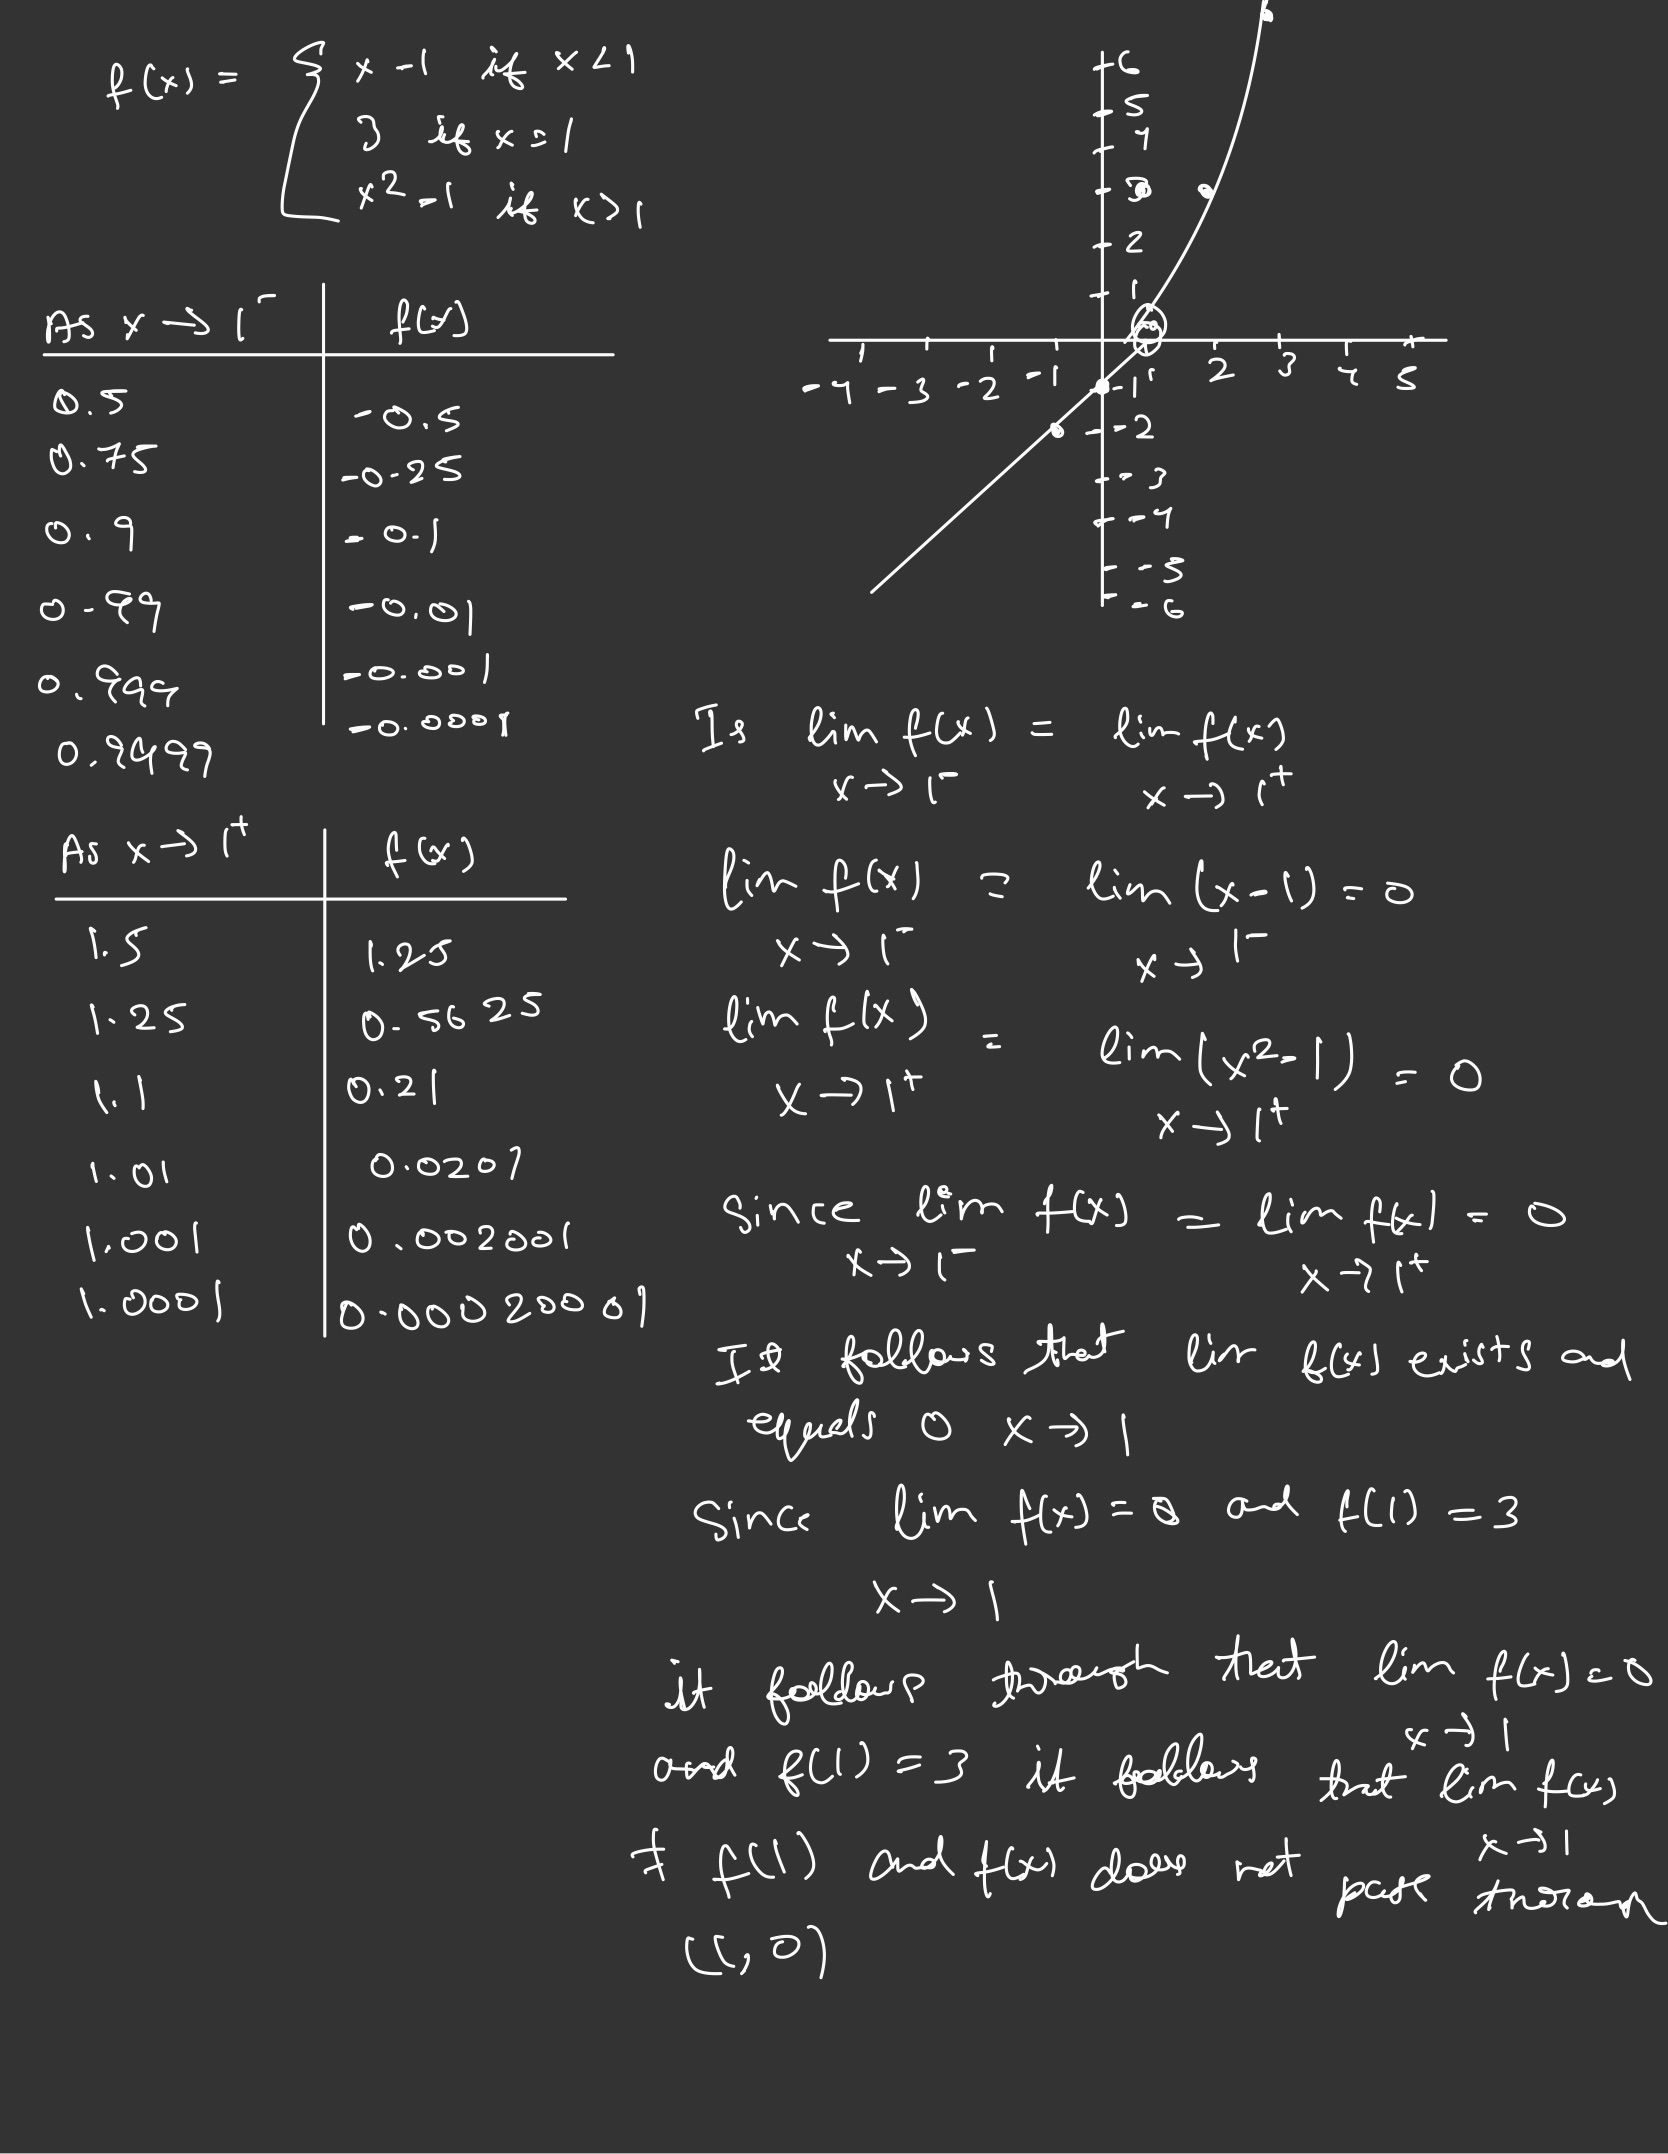 f(x) = { x - 1 if x < 1
3 if x = 1
x² - 1 if x > 1
6
5
4
3
2
1
-4 -3 -2 -1 1 2 3 4 5
-1
-2
-3
-4
-5
-6
As x → 1⁻ f(x)
0.5 -0.5
0.75 -0.25
0.9 -0.1
0.99 -0.01
0.999 -0.001
0.9999 -0.0001
As x → 1⁺ f(x)
1.5 1.25
1.25 0.5625
1.1 0.21
1.01 0.0201
1.001 0.002001
1.0001 0.00020001
Is lim f(x) = lim f(x)
x → 1⁻ x → 1⁺
lim f(x) = lim (x-1) = 0
x → 1⁻ x → 1⁻
lim f(x) = lim (x²-1) = 0
x → 1⁺ x → 1⁺
Since lim f(x) = lim f(x) = 0
x → 1⁻ x → 1⁺
It follows that lim f(x) exists and
equals 0 x → 1
Since lim f(x) = 0 and f(1) = 3
x → 1
it follows through that lim f(x) = 0
x → 1
and f(1) = 3 it follows that lim f(x)
x → 1
≠ f(1) and f(x) does not pass
(1, 0)